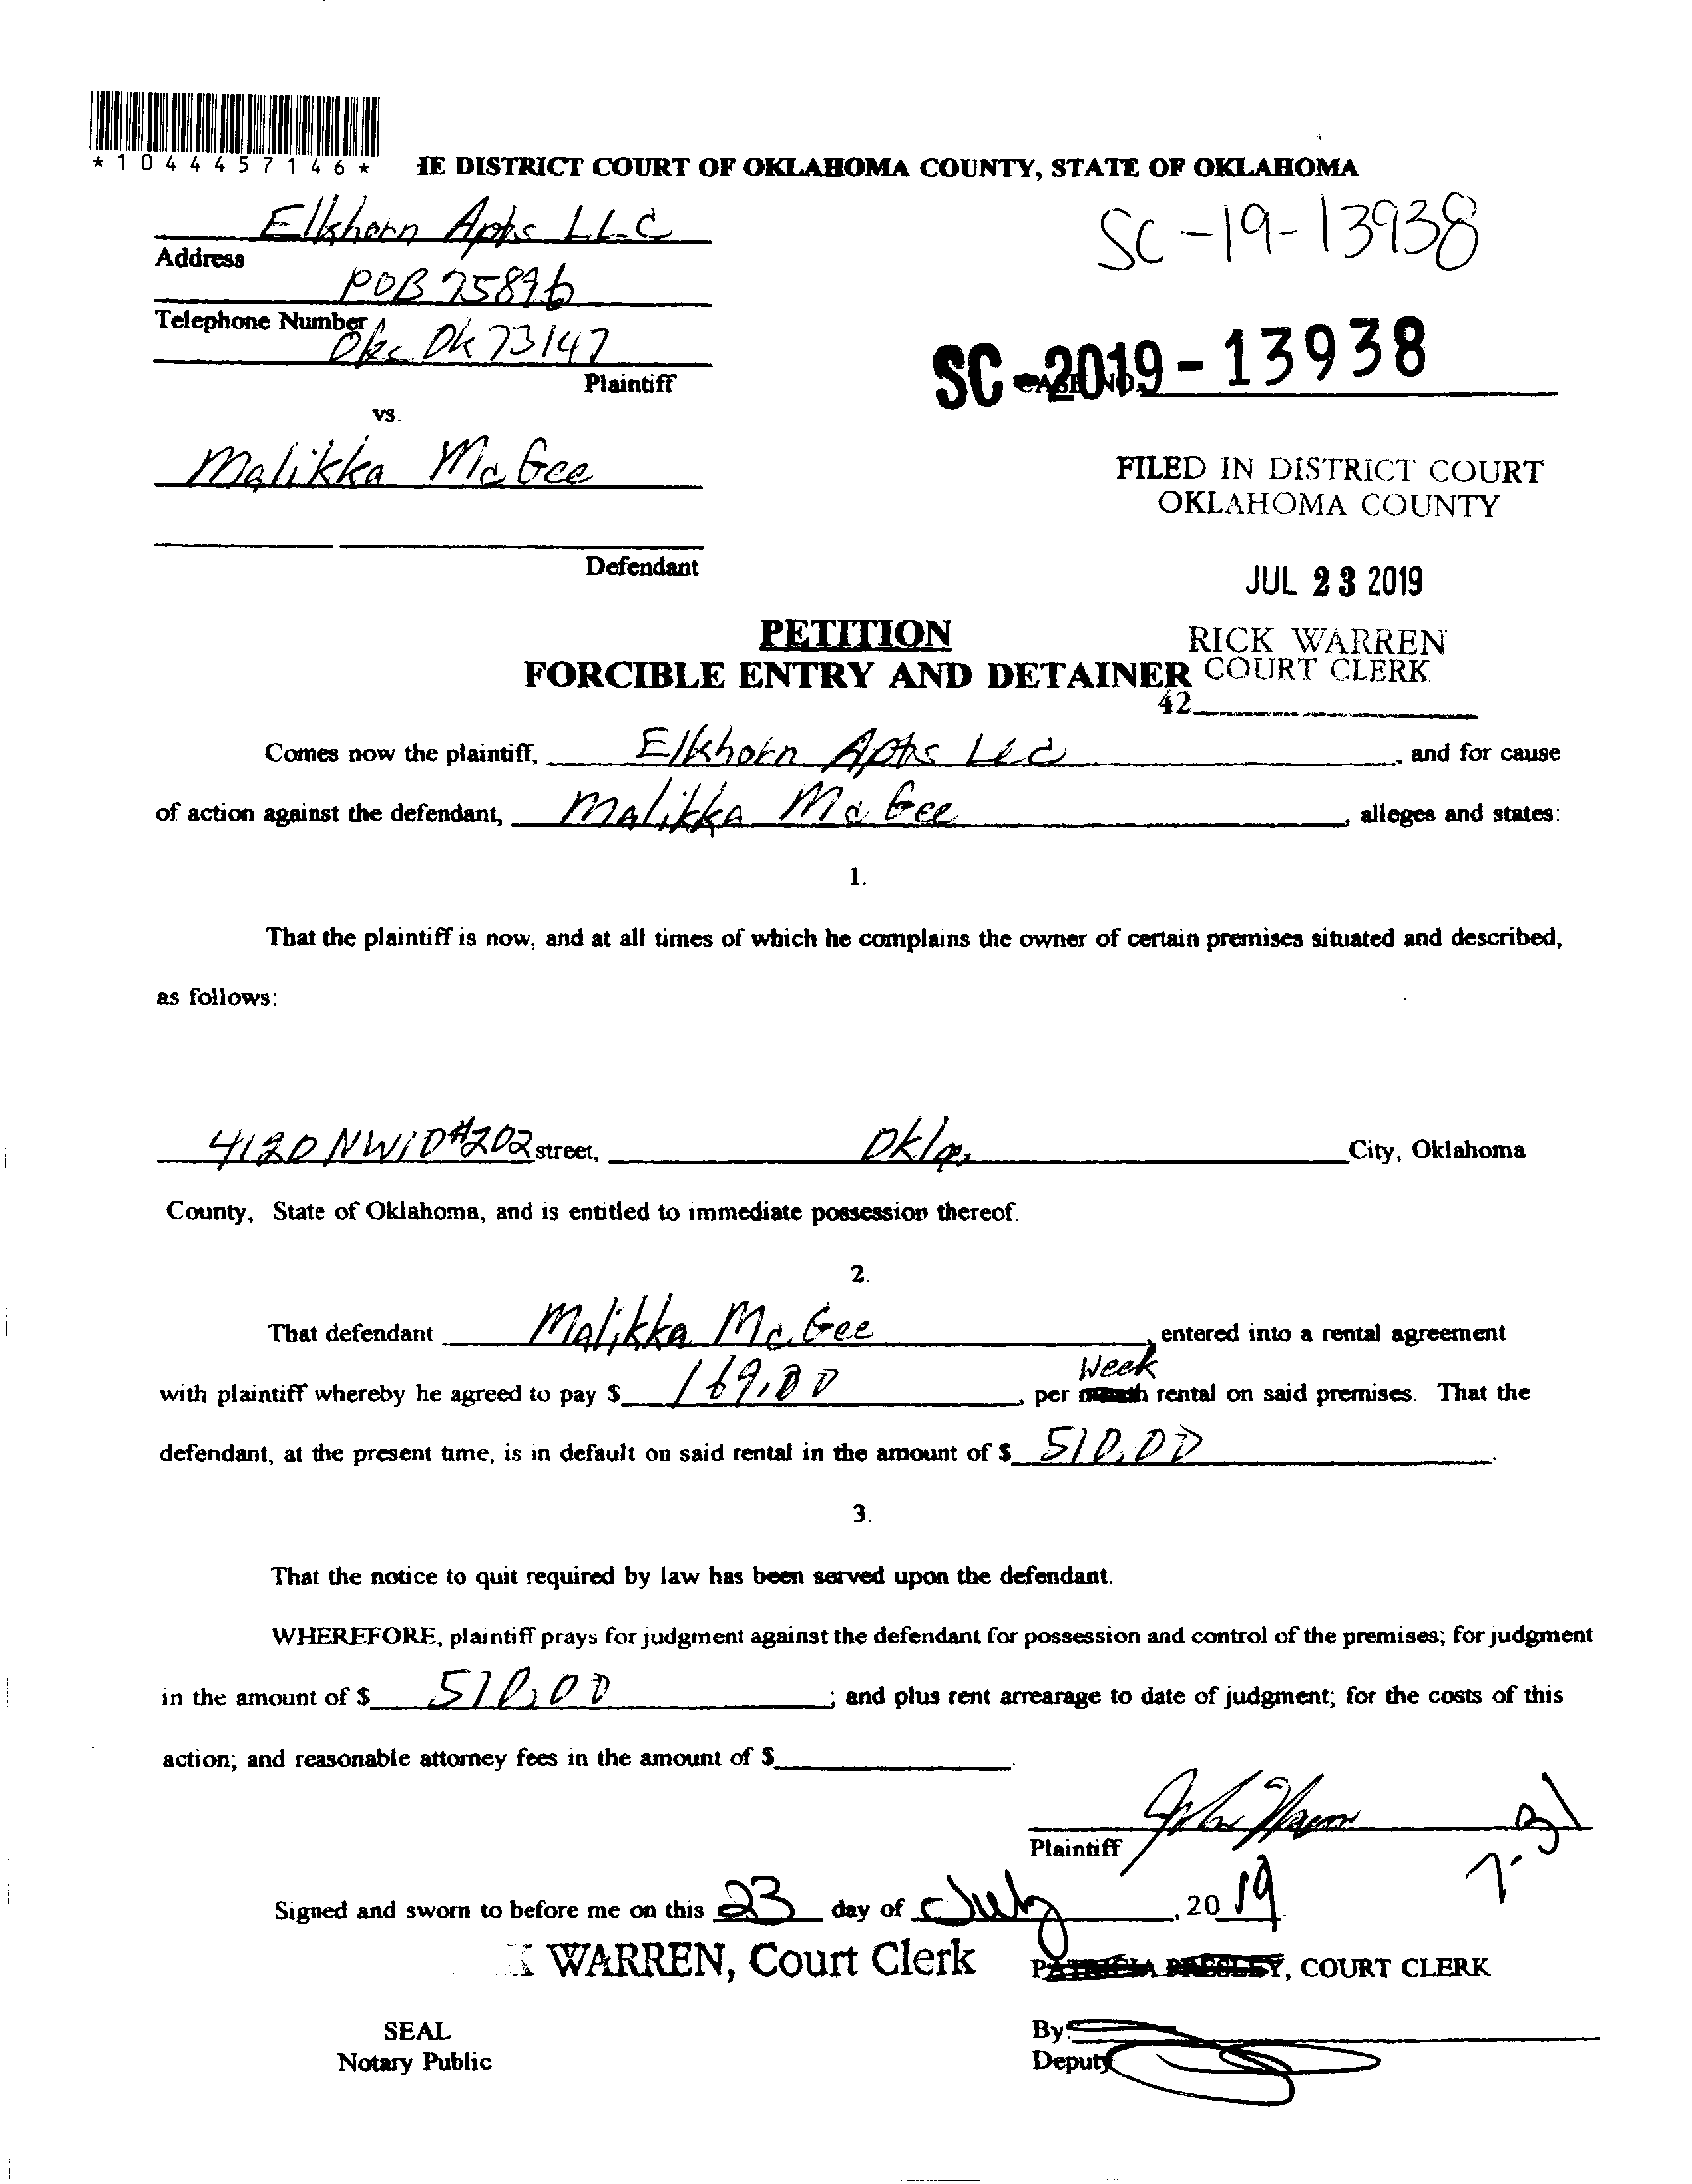 *1044457146*
IE DISTRICT COURT OF OKLAHOMA COUNTY, STATE OF OKLAHOMA
Elkhorn Apts LLC
SC-19-13938
Address
POB 75896
Telephone Number
Okc Ok 73147
Plaintiff
SC-2019-13938
CASE NO.
vs.
Malikka McGee
FILED IN DISTRICT COURT
OKLAHOMA COUNTY
Defendant
JUL 23 2019
PETITION
RICK WARREN
FORCIBLE ENTRY AND DETAINER COURT CLERK
42
Comes now the plaintiff, Elkhorn Apts LLC, and for cause
of action against the defendant, Malikka McGee, alleges and states:
1.
That the plaintiff is now, and at all times of which he complains the owner of certain premises situated and described,
as follows:
4120 NW10 #202 street, Okla. City, Oklahoma
County, State of Oklahoma, and is entitled to immediate possession thereof.
2.
That defendant Malikka McGee, entered into a rental agreement
Week
with plaintiff whereby he agreed to pay $ 169.00, per month rental on said premises. That the
defendant, at the present time, is in default on said rental in the amount of $ 510.00.
3.
That the notice to quit required by law has been served upon the defendant.
WHEREFORE, plaintiff prays for judgment against the defendant for possession and control of the premises; for judgment
in the amount of $ 510.00; and plus rent arrearage to date of judgment; for the costs of this
action; and reasonable attorney fees in the amount of $.
Plaintiff
7-31
Signed and sworn to before me on this 23 day of July, 20 19
K WARREN, Court Clerk
PATRICIA PRESLEY, COURT CLERK
SEAL
By:
Notary Public
Deputy